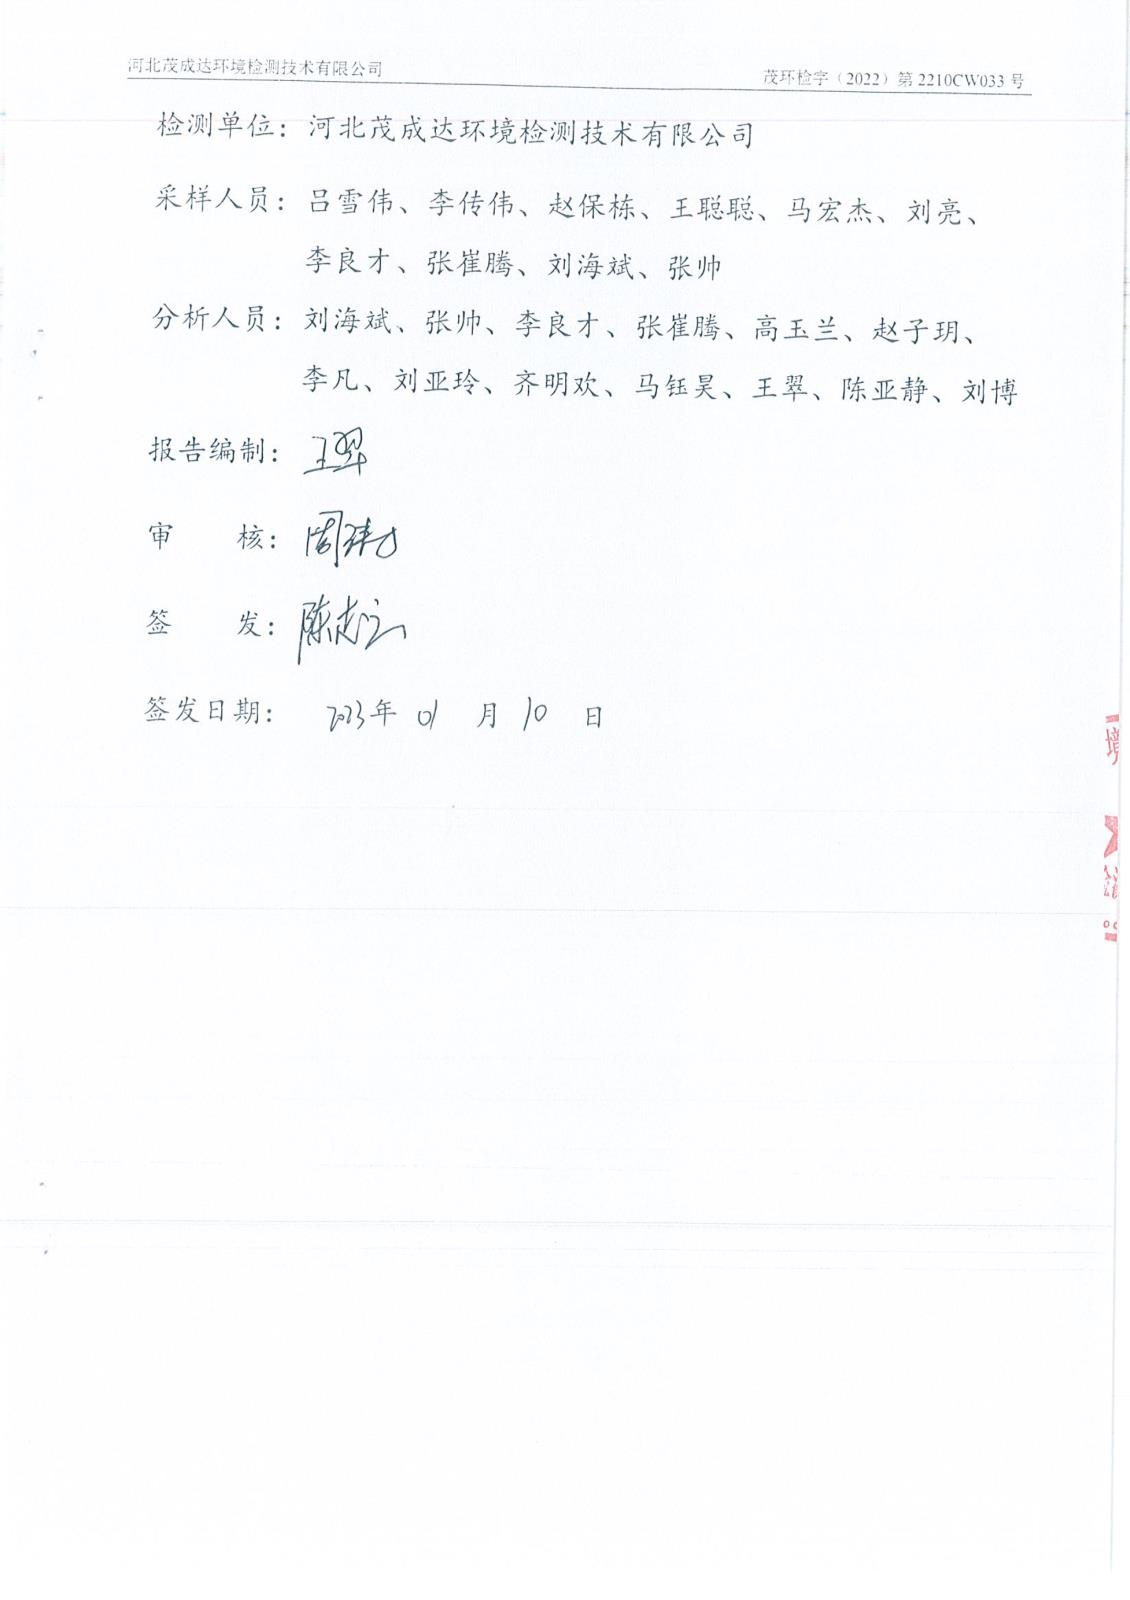 河北茂成达环境检测技术有限公司
茂环检字（2022）第 2210CW033 号
检测单位：河北茂成达环境检测技术有限公司
采样人员：吕雪伟、李传伟、赵保栋、王聪聪、马宏杰、刘亮、
李良才、张崔腾、刘海斌、张帅
分析人员：刘海斌、张帅、李良才、张崔腾、高玉兰、赵子玥、
李凡、刘亚玲、齐明欢、马钰昊、王翠、陈亚静、刘博
报告编制：王翠
审 核：周
签 发：陈志
签发日期： 2023 年 01 月 10 日
境